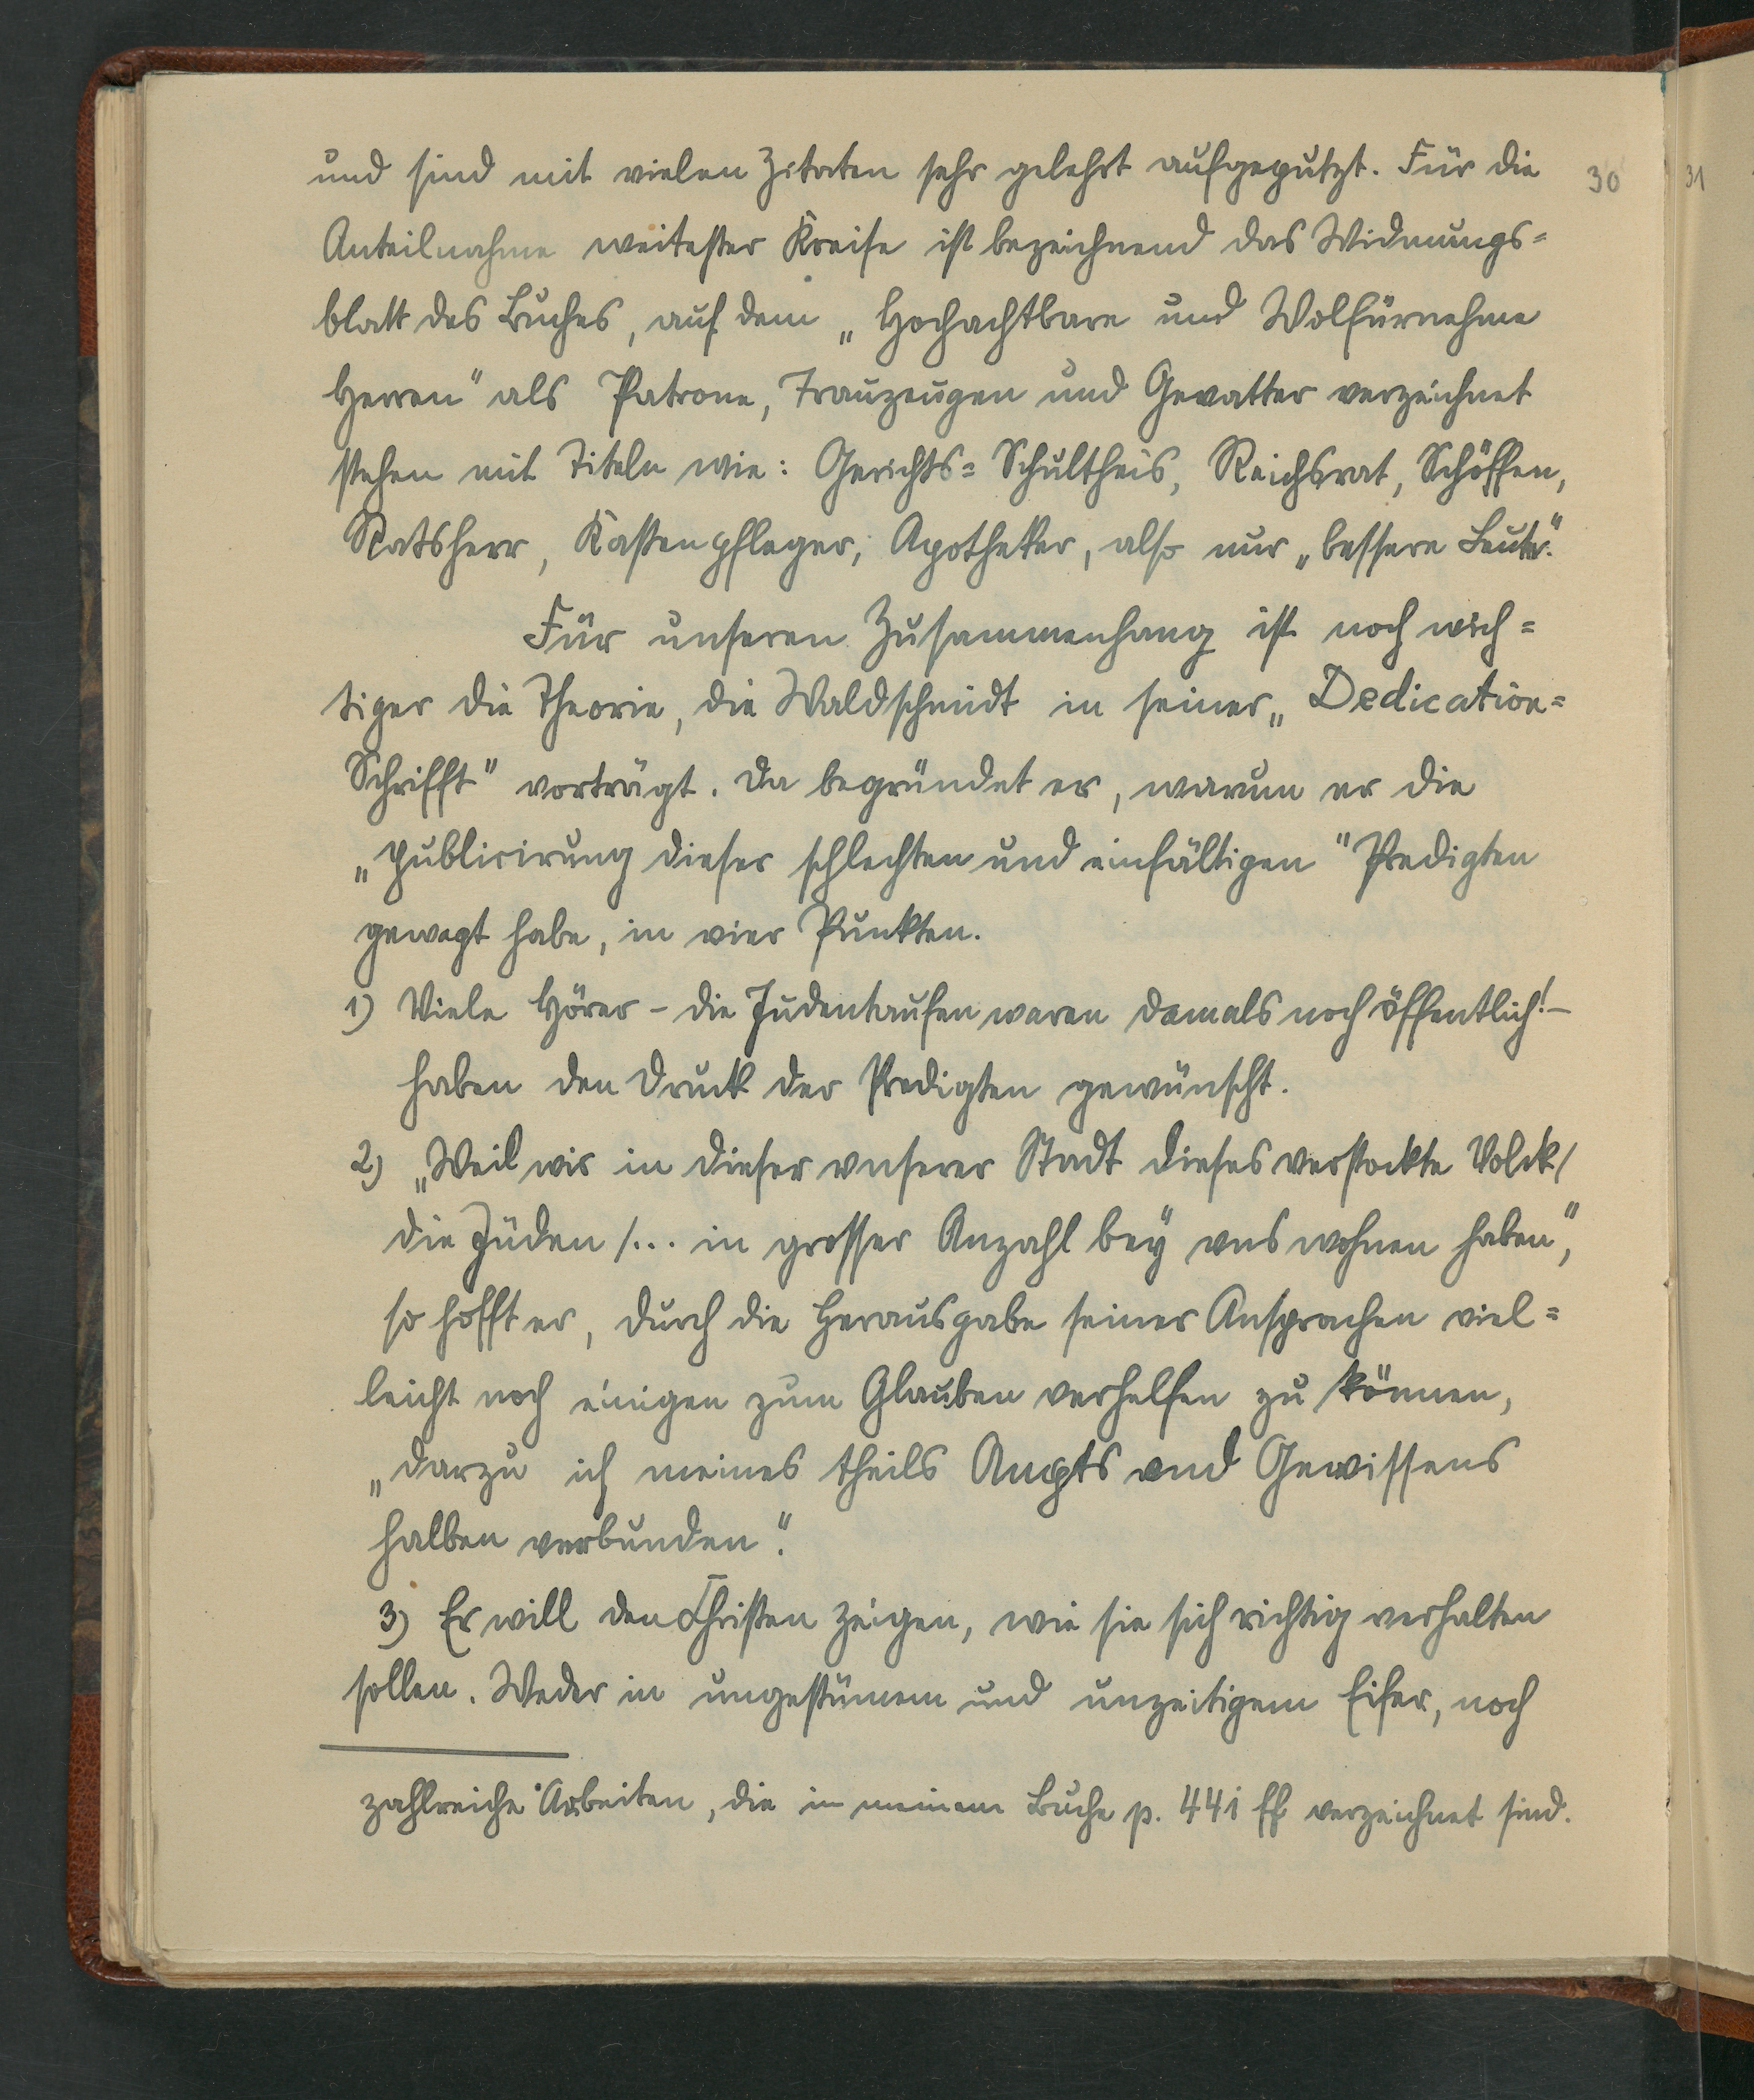 und sind mit vielen Zitaten sehr gelehrt aufgeputzt. Für die
30
31
Anteilnahme weitester Kreise ist bezeichnend das Widmungs=
blatt des Buches, auf dem „Hochachtbare und Wolfürnehme
Herren" als Patrone, Trauzeugen und Gevatter verzeichnet
stehen mit Titeln wie: Gerichts=Schultheis, Reichsrat, Schöffen,
Ratsherr, Kastenpfleger, Apotheker, also nur „bessere Leute".
Für unseren Zusammenhang ist noch wich=
tiger die Theorie, die Waldschmidt in seiner „Dedication=
Schrifft" vorträgt. Da begründet er, warum er die
„publicirung dieser schlechten und einfältigen" Predigten
gewagt habe, in vier Punkten.
1) Viele Hörer – die Judentaufen waren damals noch öffentlich! –
haben den Druck der Predigten gewünscht.
2) „Weil wir in dieser vnserer Stadt dieses verstockte Volck/
die Jüden /... in grosser Anzahl bey vns wohnen haben",
so hofft er, durch die Herausgabe seiner Ansprachen viel=
leicht noch einigen zum Glauben verhelfen zu können,
„darzu ich meines theils Ampts vnd Gewissens
halben verbunden".
3) Er will den Christen zeigen, wie sie sich richtig verhalten
sollen. Weder in ungestümem und unzeitigem Eifer, noch
zahlreiche Arbeiten, die in meinem Buche p. 441 ff verzeichnet sind.